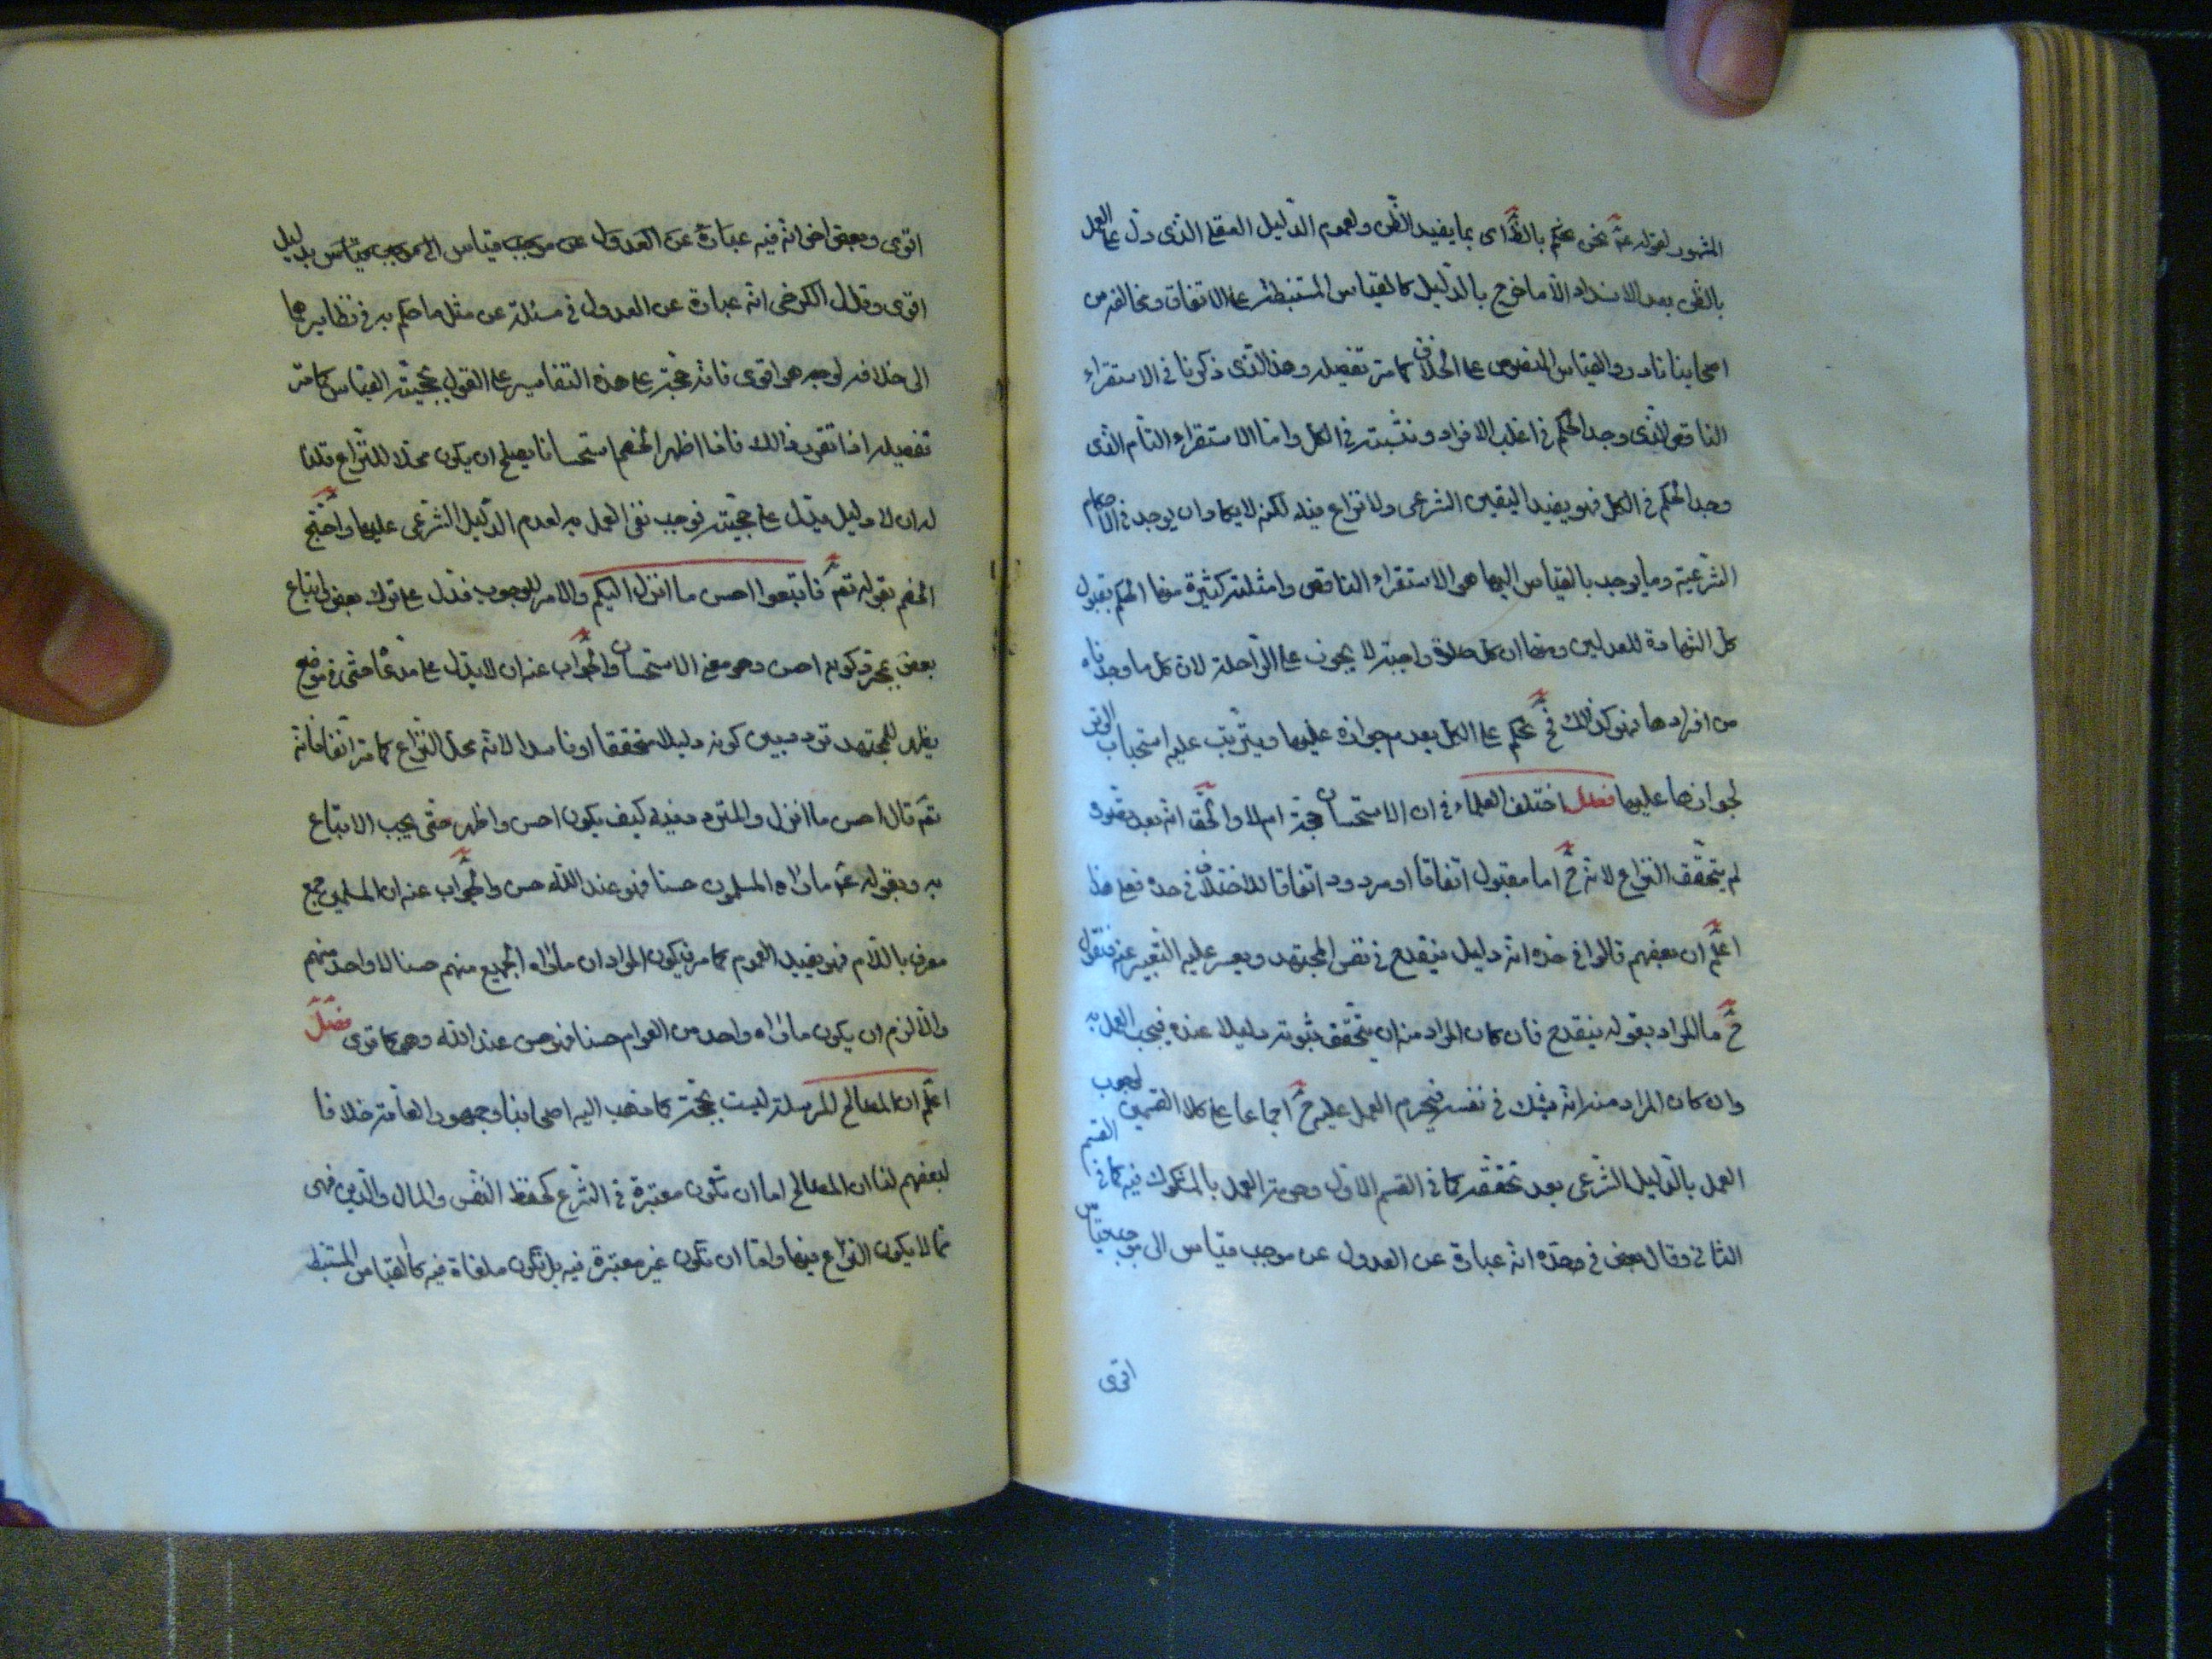 المشهور لقوله عم نحن نحكم بالظاهر اى بما يفيد الظن ولعموم الدليل العقلى الذى دل على العمل
بالظن بعد الانسداد الا ما خرج بالدليل كالقياس المستنبطة على الاتفاق ومخالفه من
اصحابنا نادر والقياس المنصوص على الخلاف كما مر تفصيله وهذا الذى ذكرنا فى الاستقراء
الناقص الذى وجد الحكم فى اغلب الافراد ونثبته فى الكل واما الاستقراء التام الذى
وجد الحكم فى الكل فهو يفيد اليقين الشرعى ولا نزاع فيه لكنه لا يكاد ان يوجد فى الاحكام
الشرعية وما يوجد بالقياس اليها هو الاستقراء الناقص وامثلته كثيرة منها الحكم بقبول
كل الشهادة للعدلين ومنها ان كل صلوة واجبة لا يجوز على الراحلة لان كل ما وجدناه
من افرادها فهو كذلك فح نحكم على الكل بعدم جوازه عليها ويترتب عليه استحباب الوتر
لجوازها عليها فصل اختلف العلماء فى ان الاستحسان حجة ام لا والحق انه بعد
لم يتحقق النزاع لانه ح اما مقبول اتفاقا او مردود اتفاقا للاختلاف فى حده فعلى هذا
اعلم ان بعضهم قالوا فى حده انه دليل ينقدع فى نفس المجتهد ويعسر عليه التعبير عنه فنقول
ح ما المراد بقوله ينقدع فان كان المراد منه ان يتحقق ثبوته دليلا عنده فيجب العمل به
وان كان المراد منه انه يشك فى نفسه فيحرم العمل عليه ح اجماعا على كلا القسمين لوجوب
العمل بالدليل الشرعى بعد تحققه كما فى القسم الاول وحرمة العمل بالمشكوك فيه كما فى القسم
الثانى وقال بعض فى حده انه عبارة عن العدول عن موجب قياس الى موجب قياس
اقوى
اقوى وبعض اخر انه فيه عبارة عن العدول عن موجب قياس الى موجب قياس بدليل
اقوى وقال الكرخى انه عبارة عن العدول فى مسئلة عن مثل ما حكم به فى نظايرها
الى خلافه لوجه هو اقوى فانه حجة على هذه التفاسير على القول بحجية القياس كما مر
تفصيله اذا تقرر ذالك فاذا اظهر الخصم استحسانا يصلح ان يكون محلا للنزاع قلنا
له ان لا دليل يدل على حجيته فوجب نفى العمل به لعدم الدليل الشرعى عليها واحتج
الخصم بقوله تعم فاتبعوا احسن ما انزل اليكم والامر للوجوب فدل على ترك بعض اتباع
بعض بمجرد كونه احسن وهو معنى الاستحسان والجواب عنه ان لا يدل على مدعا حتى فى موضع
يظهر للمجتهد تردد بين كونه دليلا متحققا او فاسدا لانه محل النزاع كما مر اتفافانه
تعم قال احسن ما انزل والمتردد فيه كيف يكون احسن واظهر حتى يجب الاتباع
به وبقوله عم ما راه المسلمون حسنا فهو عند الله حسن والجواب عنه ان المسلمين جمع
معرف باللام فهو يفيد العموم كما مر فيكون المراد ان ما راه الجميع منهم حسنا لا واحد منهم
والا لزم ان يكون ما راه واحد من العوام حسنا فهو حسن عند الله وهو كما ترى فصل
اعلم ان المصالح المرسلة ليست بحجة كما ذهب اليه اصحابنا وجمهور العامة خلافا
لبعضهم لنا ان المصالح اما ان تكون معتبرة فى الشرع كحفظ النفس والمال والدين فهى
مما لا يكون النزاع فيها واما ان تكون غير معتبرة فيه بل تكون ملغاة فيه كالقياس المستنبط